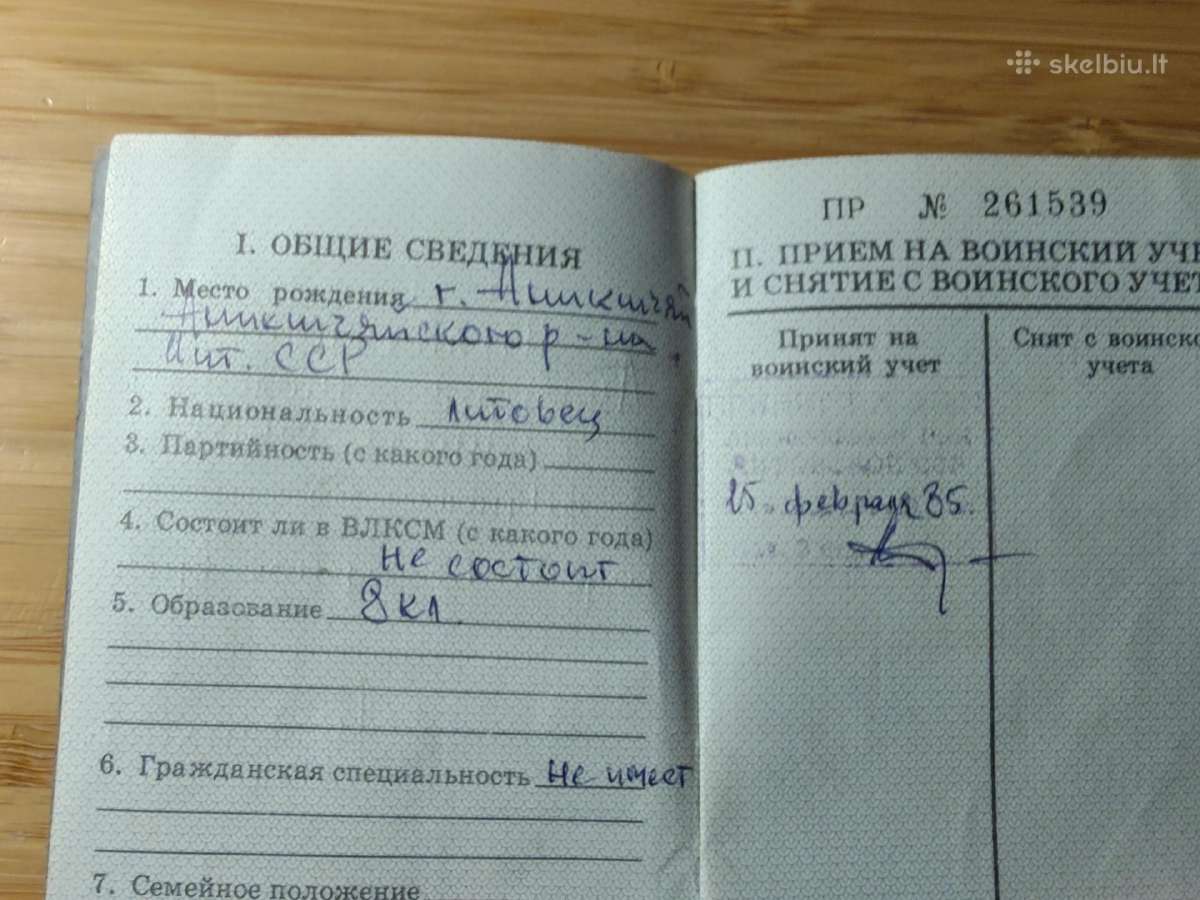 skelbiu.lt
I. ОБЩИЕ СВЕДЕНИЯ
1. Место рождения г. Аникщяй
Аникщяйского р-на,
Лит. ССР
2. Национальность литовец
3. Партийность (с какого года)
4. Состоит ли в ВЛКСМ (с какого года)
Не состоит
5. Образование 8 кл.
6. Гражданская специальность Не имеет
7. Семейное положение
ПР № 261539
II. ПРИЕМ НА ВОИНСКИЙ УЧЕ
И СНЯТИЕ С ВОИНСКОГО УЧЕТ
Принят на
воинский учет
Снят с воинско
учета
25. февраля 85.